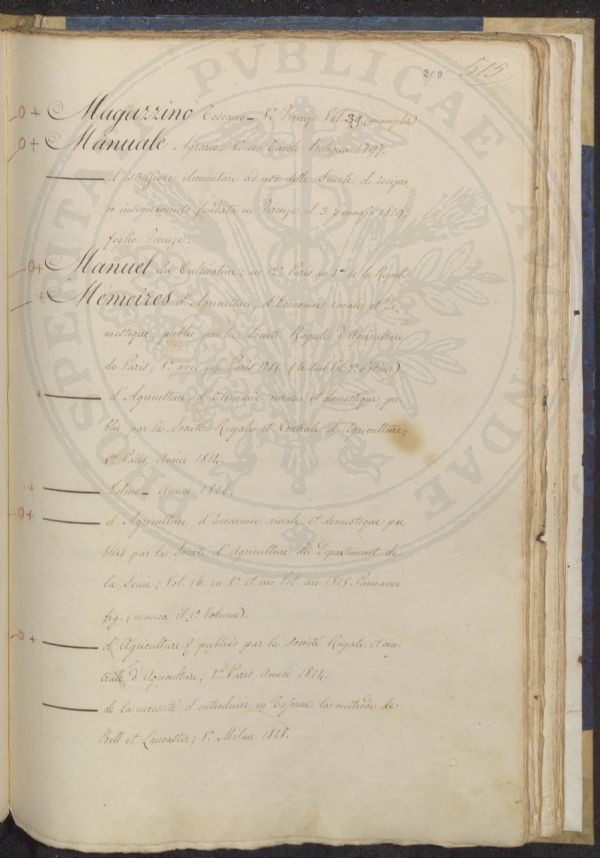 PROSPERITATI PVBLICAE AVGENDAE
200 515
Magazzino Toscano – 8.° Firenze Vol. 39 (incompleto)
Manuale Agrario, 8.° con Tavole Bologna 1797.
d'Istruzione elementare ad uso delle Scuole di recipro
co insegnamento fondata in Firenze il 3 1819.
foglio Firenze.
Manuel du Cultivateur; in 12.° Paris an 3.e de la Repub.
Mémoires d'Agriculture, d'Economie rurale et Do
mestique, publié par la Societé Royale d'Agriculture
de Paris, 8.° avec fig. Paris (le sul Vol. d'hiver)
d'Agriculture, d'Economie rurale et domestique pu
bliée par la Societé Royale et Centrale d'Agriculture;
8.° Paris, Année 1814.
Année 1816.
d'Agriculture, d'Economie rurale et domestique pu
bliés par la Societé d'Agriculture du Departement de
la Seine; Vol. 16. en 8.° et un Vol. an 1815. Paris avec
fig. (manca il 1.° Volume).
d'Agriculture & publiés par la Societé Royale et cen
trale d'Agriculture; 8.° Paris, Année 1814.
de la necessité d'introduire en Toscane la methode de
Bell et Lancaster; 8.° Milan 1818.